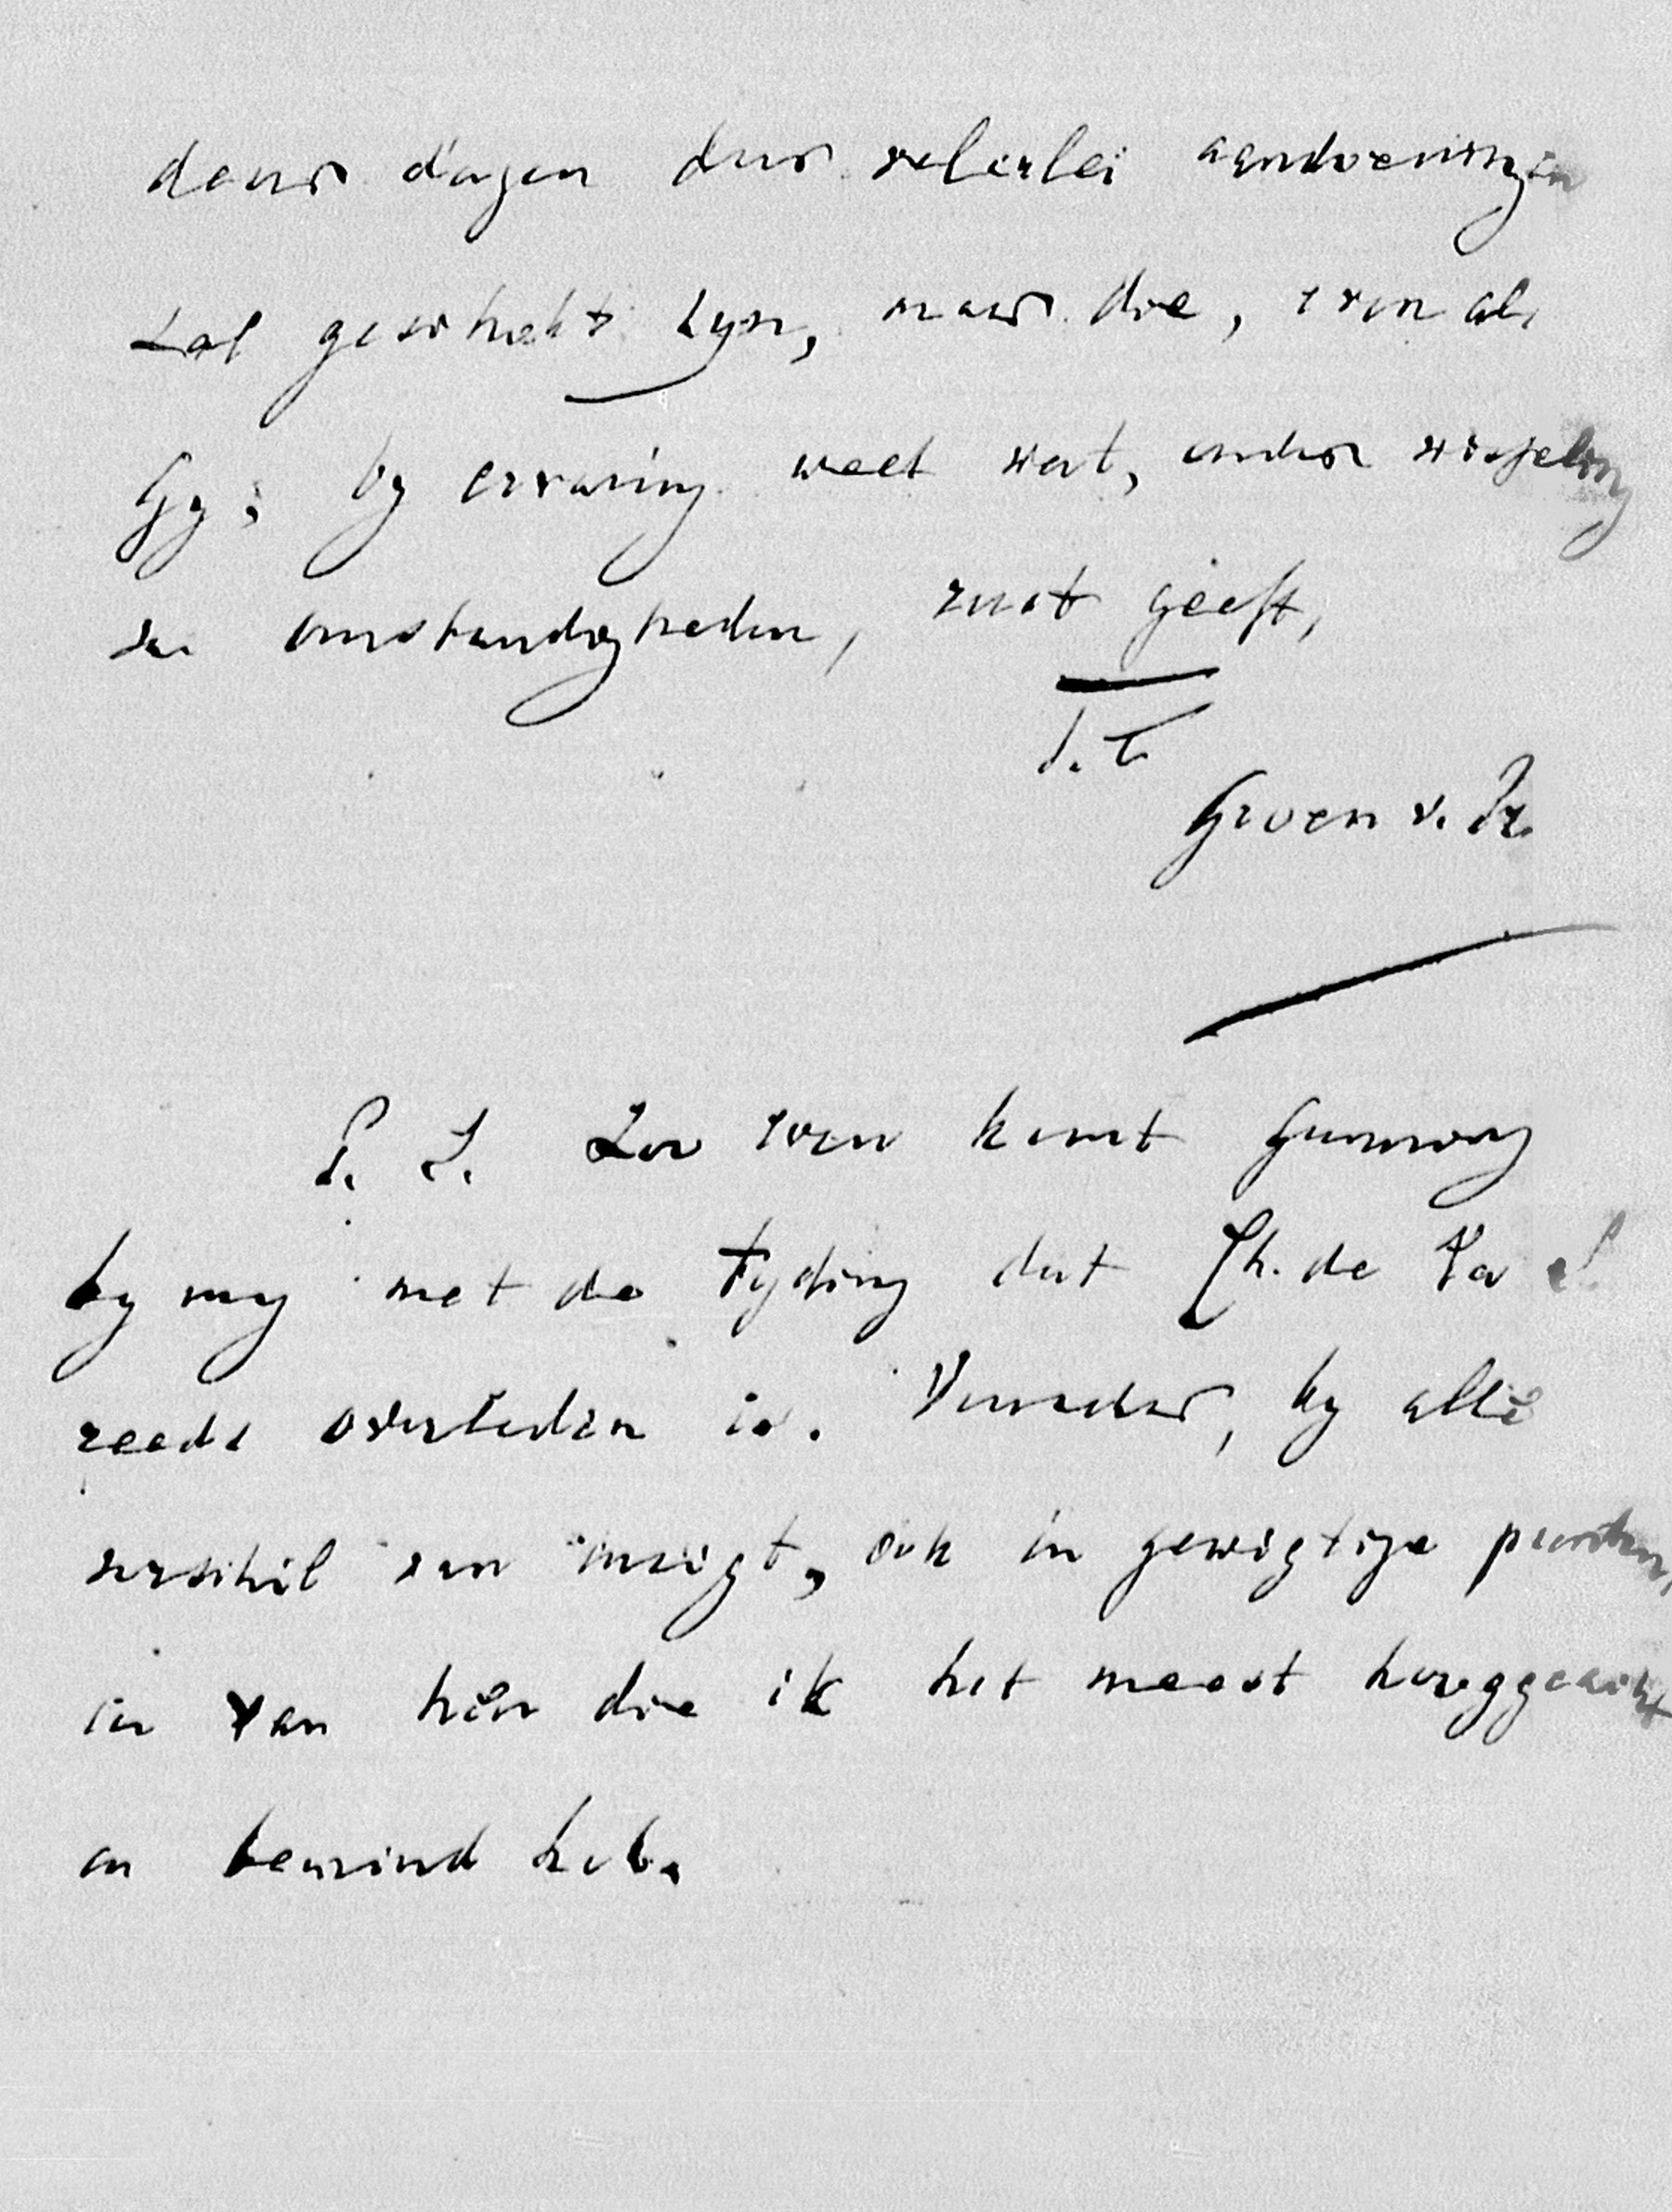 dezer dagen door velerlei aandoeningen
zal geschokt zyn, maar die, even als
Gy, by ervaring weet wat, onder wisseling
van omstandigheden, rust geeft,
t. t.
Groen v. Pr.
P. S. Zoo even komt Gunning
by my met de tyding dat Ch. de
reeds overleden is. Vinet, by alle
verschil van inzigt, ook in gewigtige punten,
een van hen die ik het meest hooggeacht
en bemind heb.